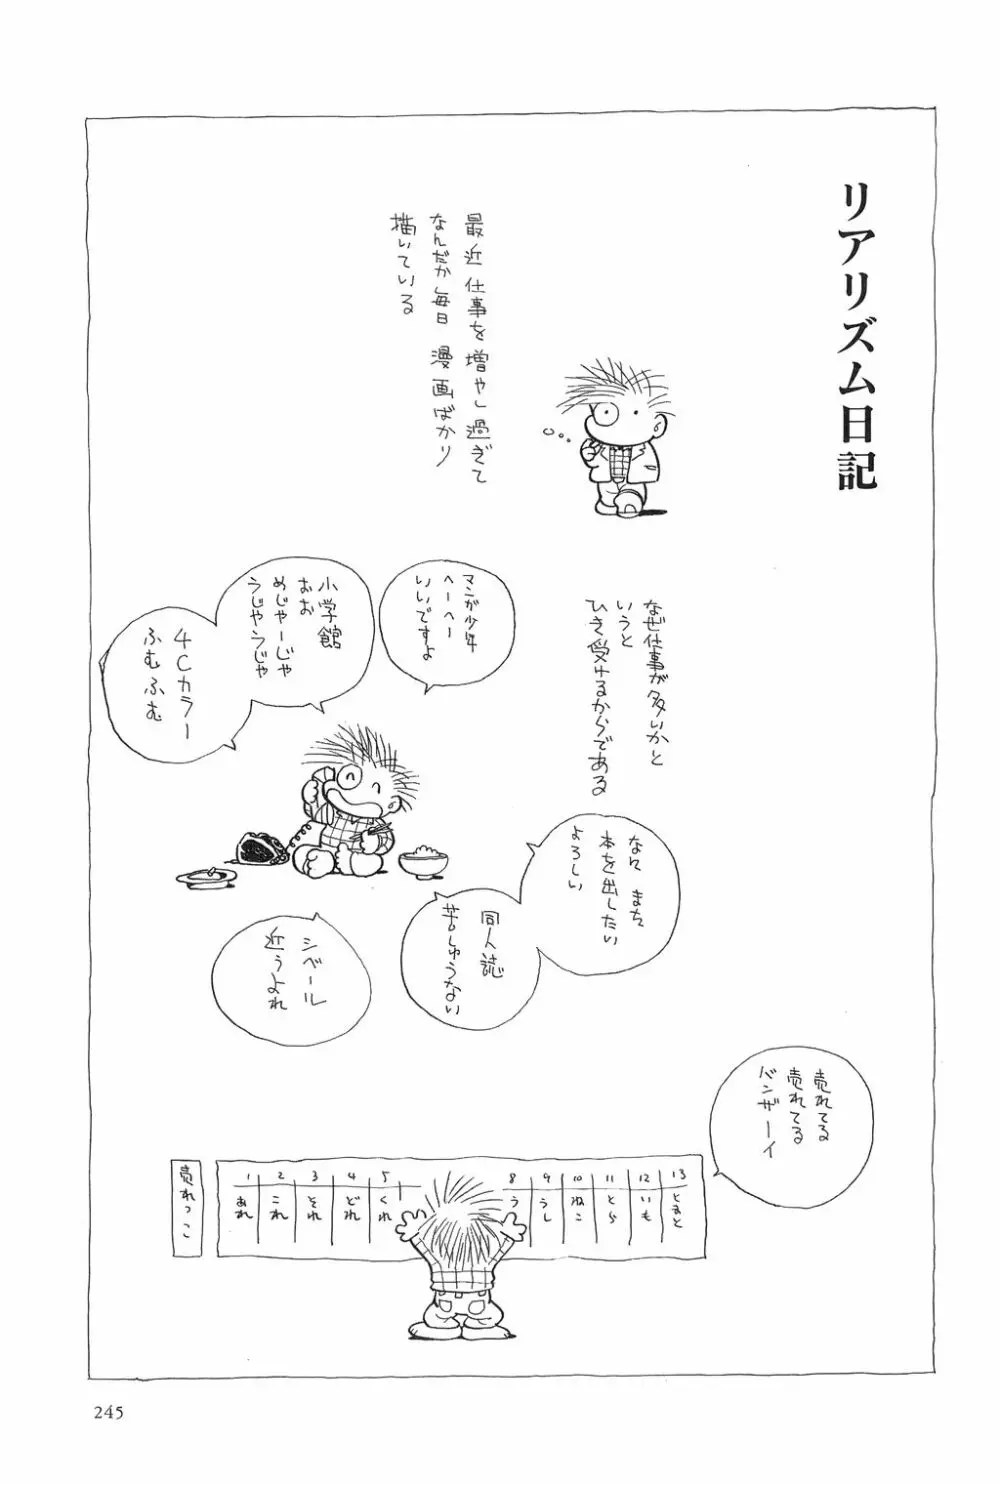 リアリズム日記
最近 仕事を増やし過ぎて
なんだか毎日 漫画ばかり
描いている
なぜ仕事が多いかと
いうと
ひき受けるからである
マンガ少年
へーへー
いいですよ
小学館
おお
めじゃーじゃ
うじゃうじゃ
4Cカラー
ふむふむ
なに まち
本を出したい
よろしい
同人誌
苦しゅうない
シベール
近うよれ
売れてる
売れてる
バンザーイ
売れっこ
1 2 3 4 5 8 9 10 11 12 13
あれ これ それ どれ くれ う うし ねこ とら いも とまと
245